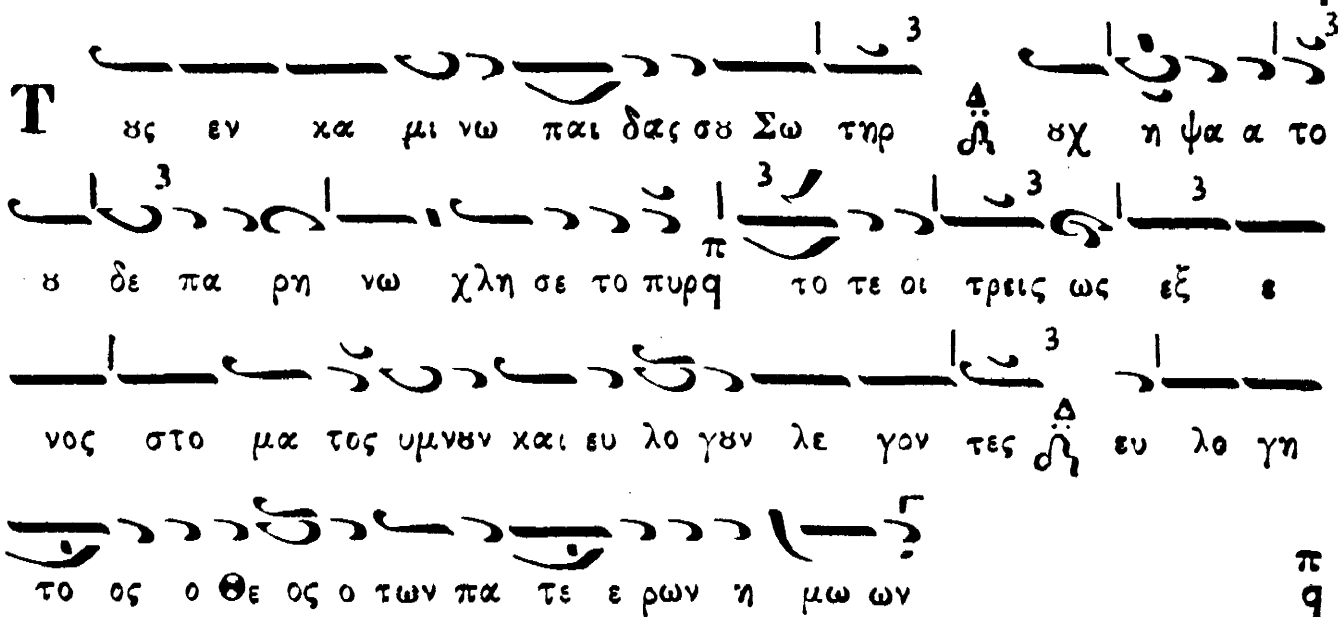 Τ ȣς εν κα μι νω παι δας σȣ Σω τηρ Δ ȣχ η ψα α το
ȣ δε πα ρη νω χλη σε το πυρ π q το τε οι τρεις ως εξ ε
νος στο μα τος υμνȣν και ευ λο γȣν λε γον τες Δ ευ λο γη
το ος ο Θε ος ο των πα τε ε ρων η μω ων π q